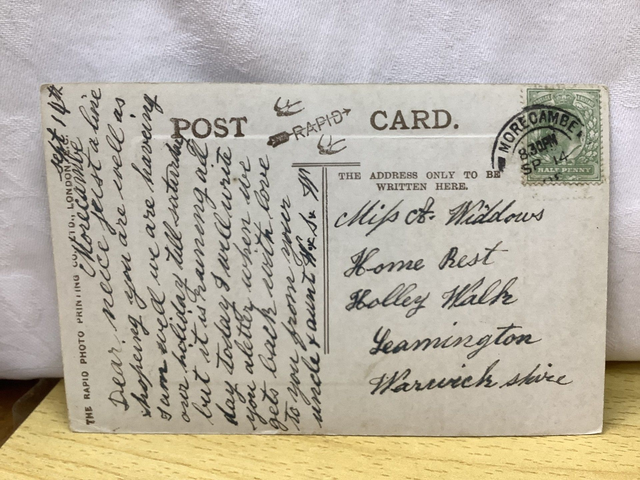 POST CARD.
RAPID
THE ADDRESS ONLY TO BE
WRITTEN HERE.
MORECAMBE
8.30PM
SP 14
HALFPENNY
Miss A. Widdows
Home Rest
Holley Walk
Leamington
Warwickshire
Sept 14th
Morecambe
Dear neice just a line
hopeing you are well as
I am well we are haveing
our holiday till saturday
but it is raining all
day today I will write
you a letter when we
gets back with love
to you from your
uncle & aunt
THE RAPID PHOTO PRINTING CO., LTD., LONDON